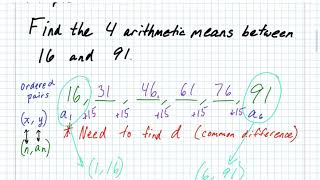 Find the 4 arithmetic means between
16 and 91.
Ordered pairs
16, 31, 46, 61, 76, 91
+15 +15 +15 +15 +15
a₁ a₆
(x, y)
* Need to find d (common difference)
(n, aₙ)
(1, 16) (6, 91)